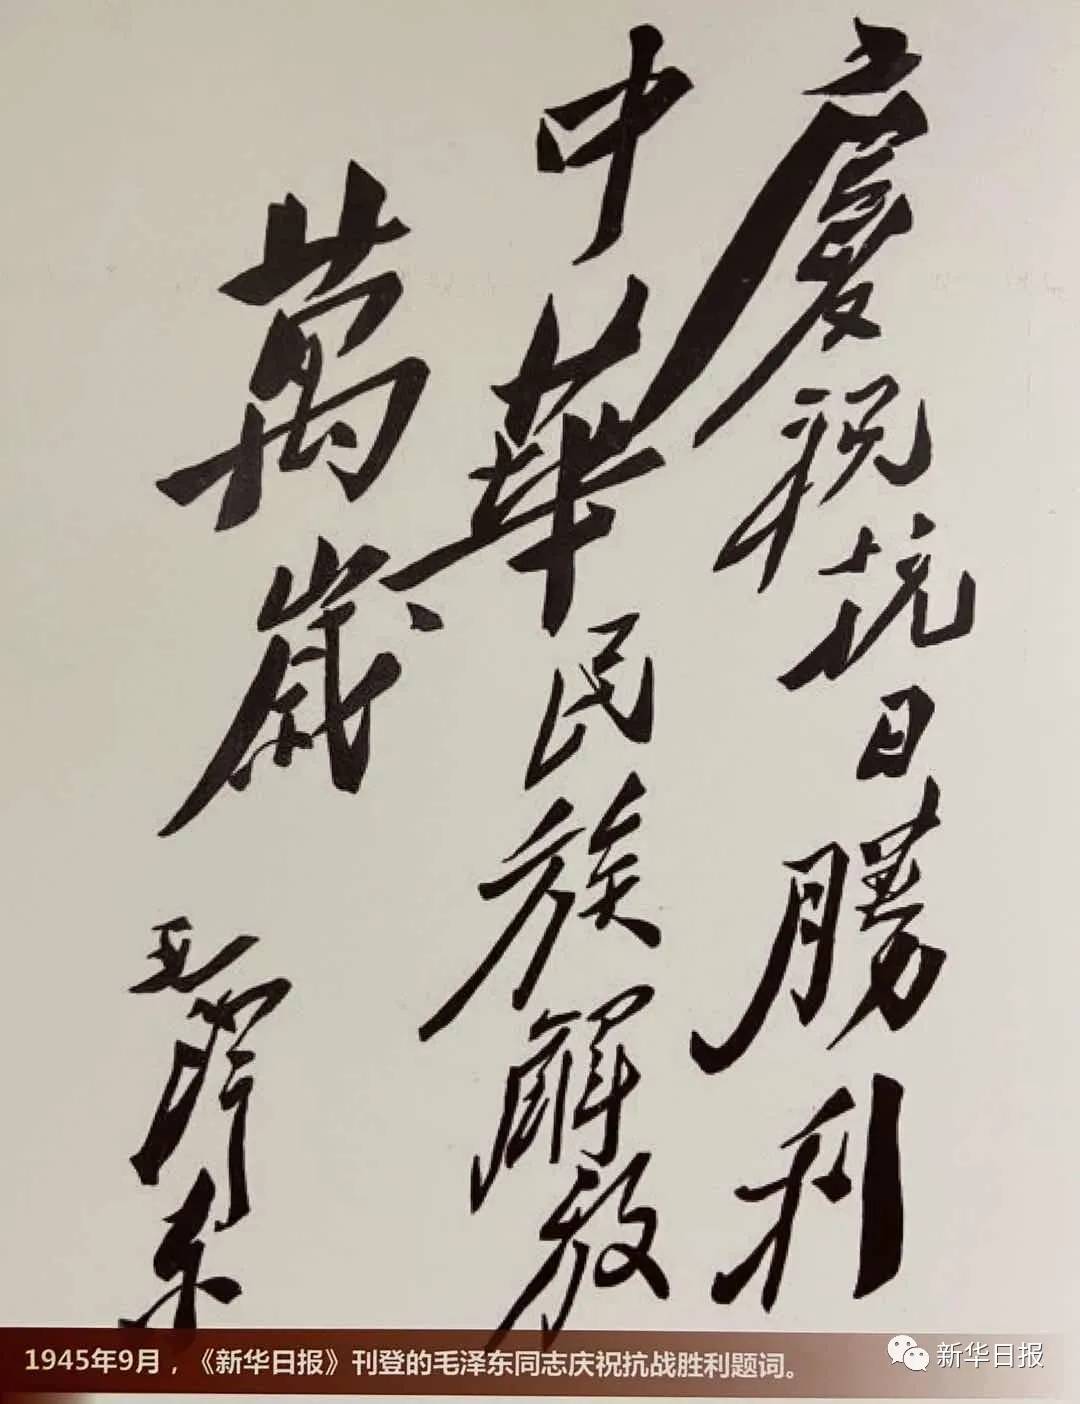 慶祝抗日勝利
中華民族解放
萬歲
毛澤东
1945年9月，《新华日报》刊登的毛泽东同志庆祝抗战胜利题词。
新华日报